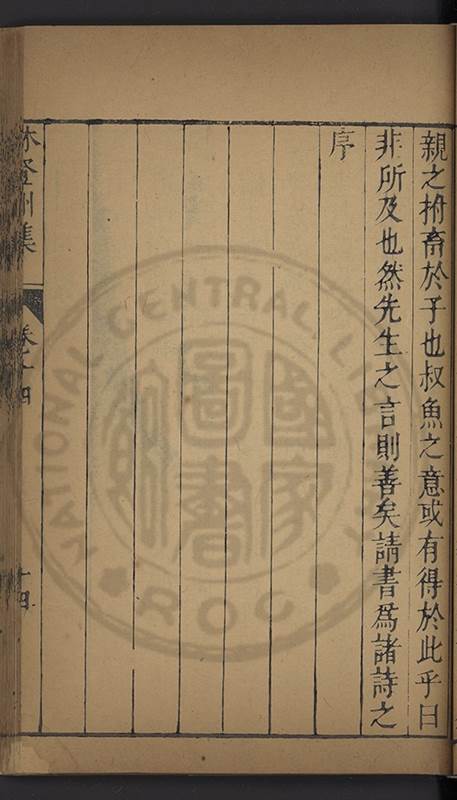 親之拊畜於子也叔魚之意或有得於此乎曰
非所及也然先生之言則善矣請書爲諸詩之
序
林登州集
卷之四
十四
國家圖書館
NATIONAL CENTRAL LIBRARY
ROC